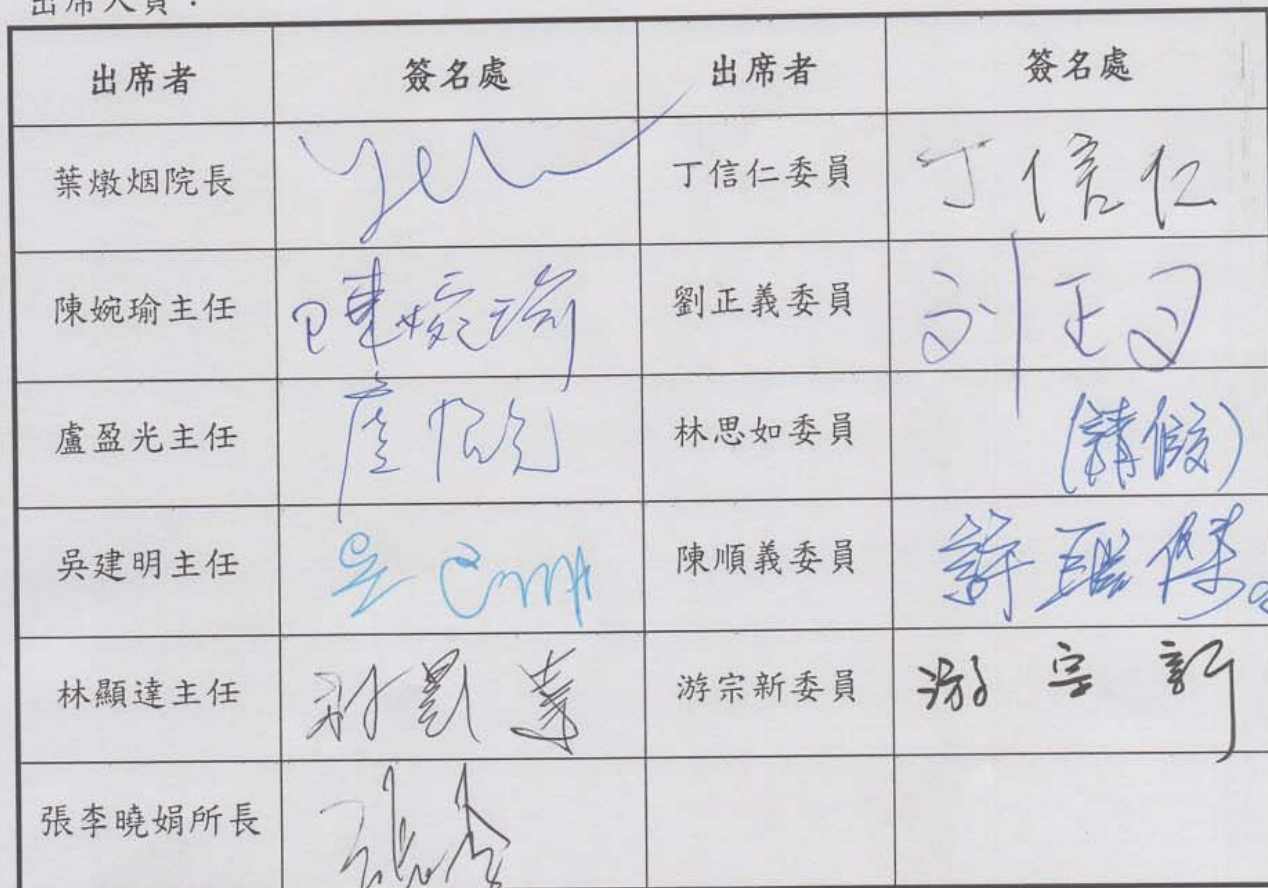 出席人員：
出席者 簽名處 出席者 簽名處
葉燉烟院長 yeh 丁信仁委員 丁信仁
陳婉瑜主任 陳婉瑜 劉正義委員 刘正义
盧盈光主任 盧盈光 林思如委員 (請假)
吳建明主任 吳 陳順義委員 許聰傑
林顯達主任 林顯達 游宗新委員 游宗新
張李曉娟所長 張李